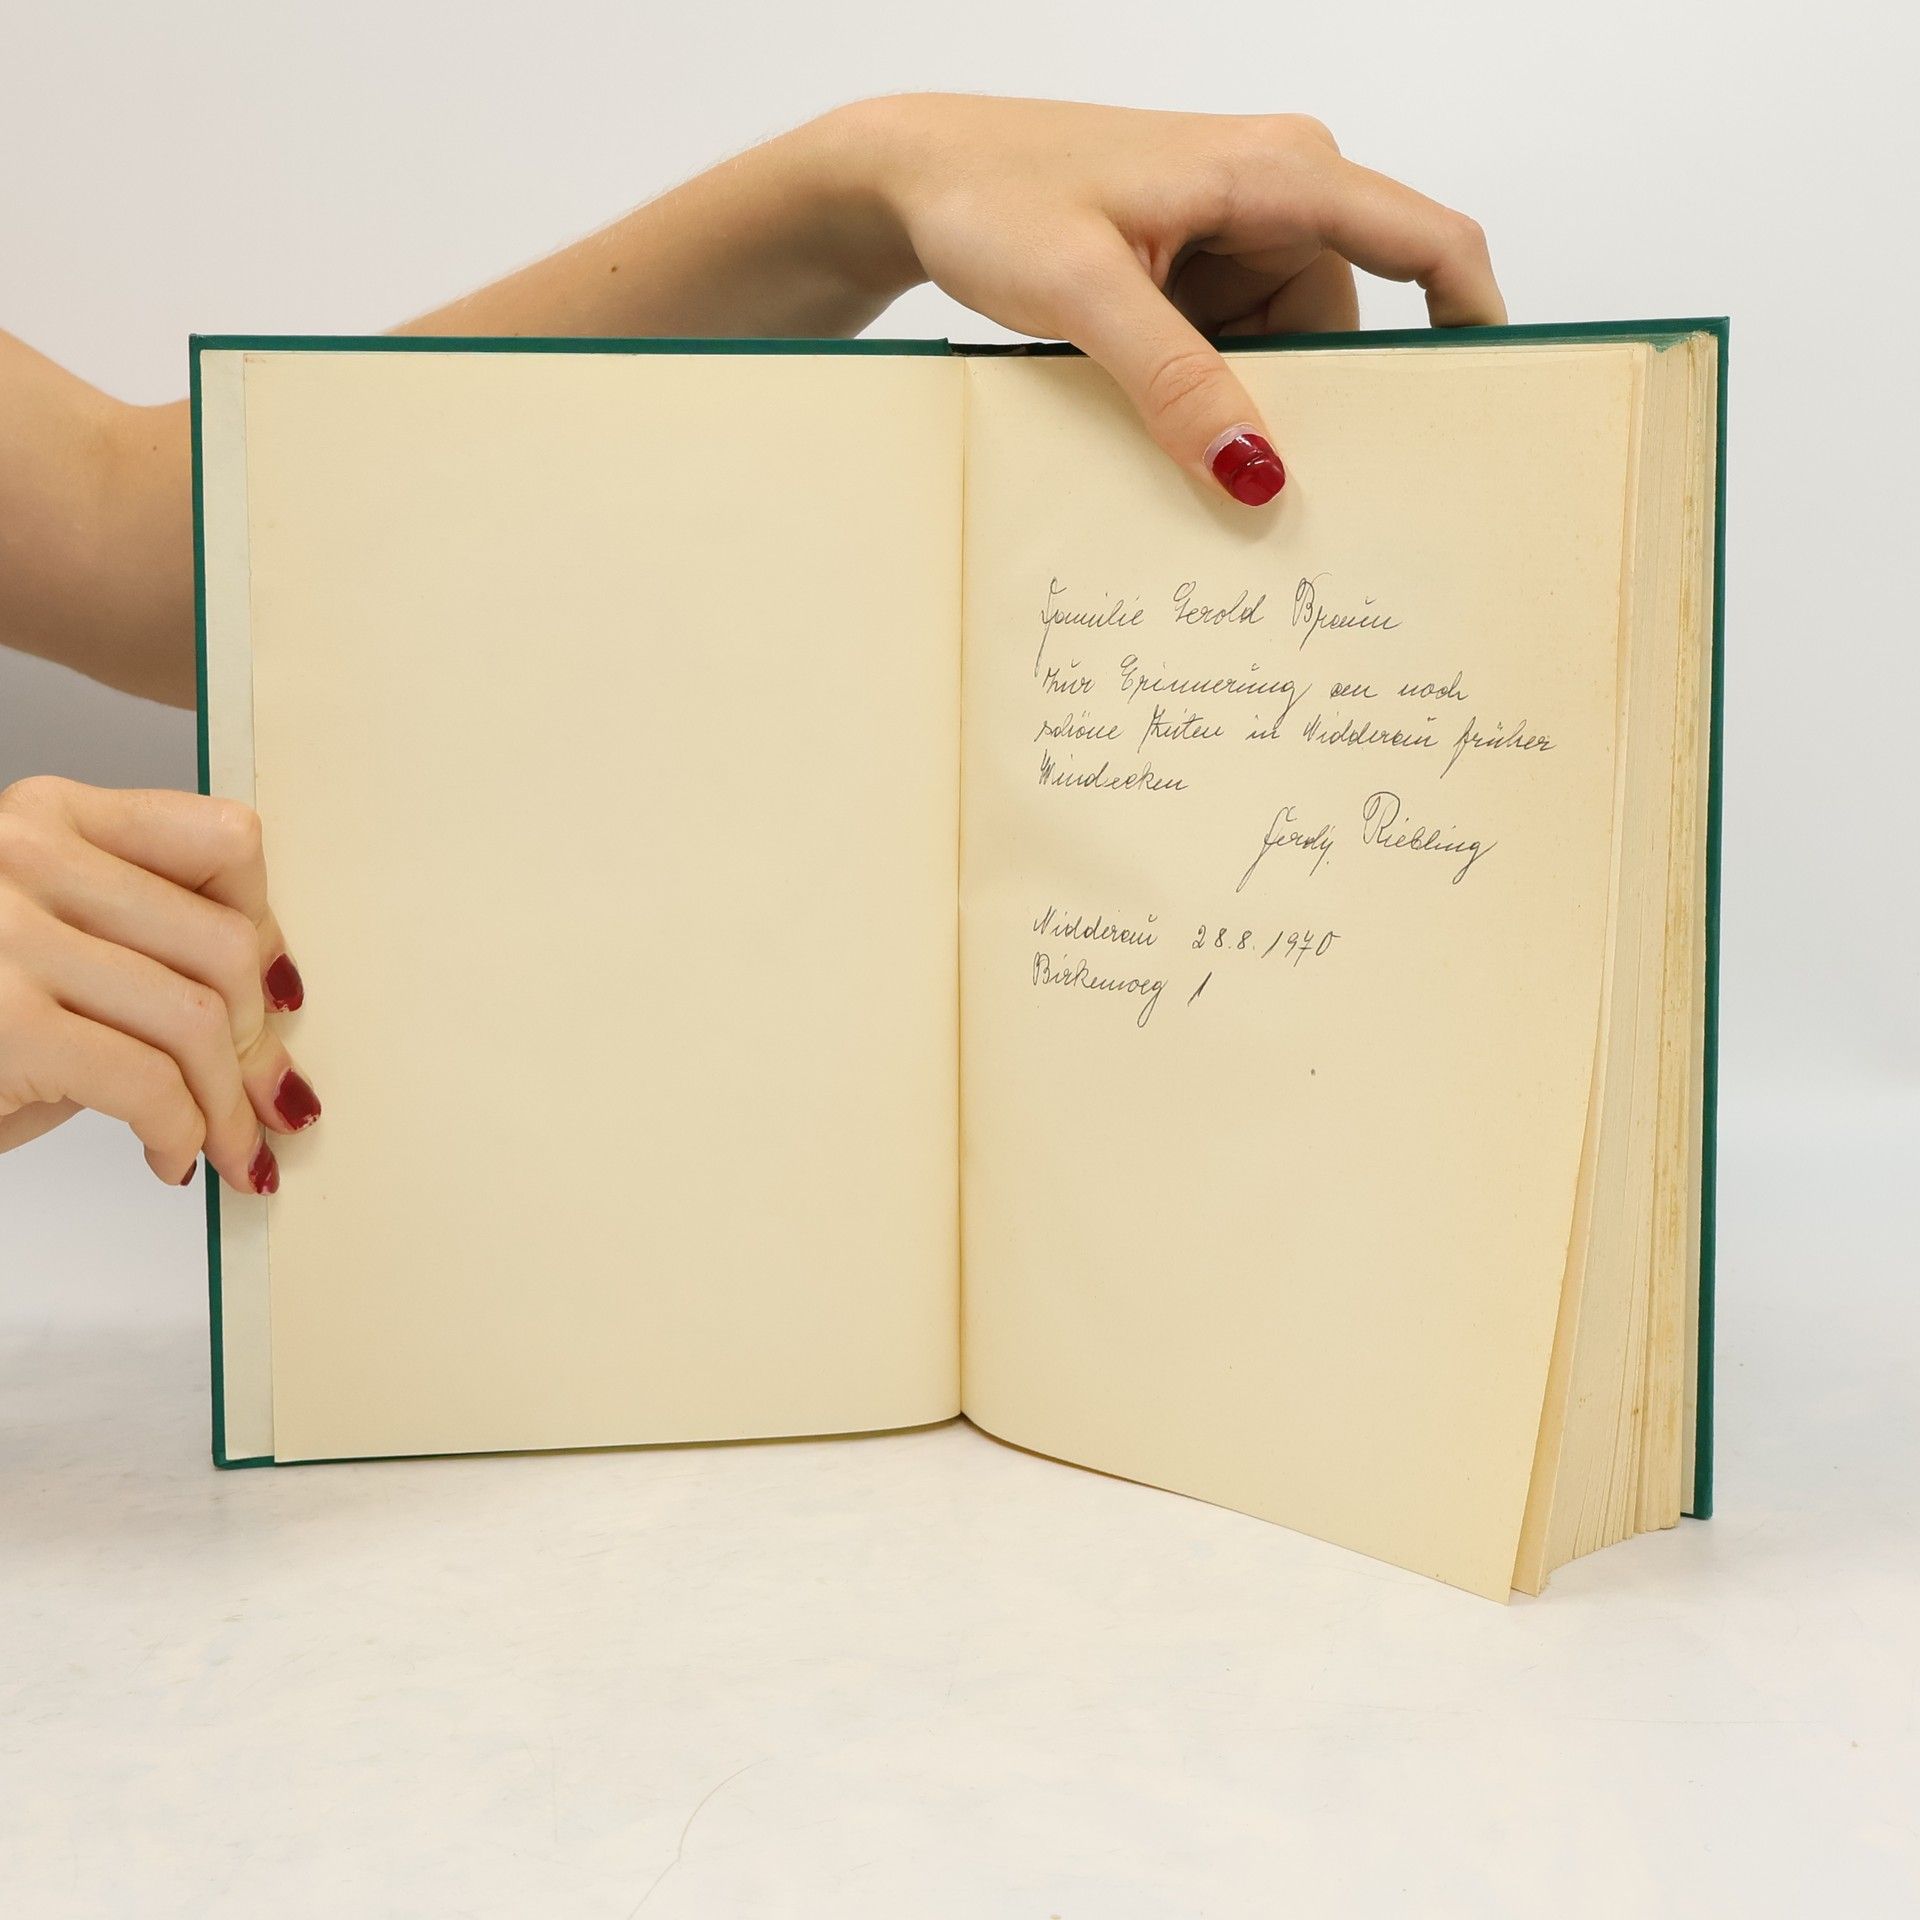 Familie Gerold Braun
zur Erinnerung an noch
schöne Zeiten in Nidderau früher
Windecken
Ferdy Riebling
Nidderau 28.8.1970
Birkenweg 1